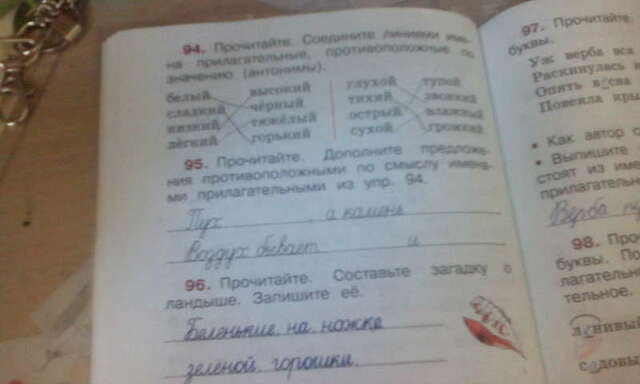 94. Прочитайте. Соедините линиями име-
на прилагательные, противоположные по
значению (антонимы).
белый высокий глухой тупой
сладкий чёрный тихий звонкий
низкий тяжёлый острый влажный
лёгкий горький сухой громкий
95. Прочитайте. Дополните предложе-
ния противоположными по смыслу имена-
ми прилагательными из упр. 94.
Пух , а камень
Воздух бывает и
96. Прочитайте. Составьте загадку о
ландыше. Запишите её.
Беленькие на ножке
зелёной горошки.
97. Прочитайте.
буквы.
Уж верба вся
Раскинулась
Опять в сна
Повеяла кры
• Как автор
• Выпишите
стоят из име
прилагательн
Верба
98. Про
буквы. По
лагательн
тельное.
л нивый
с довы